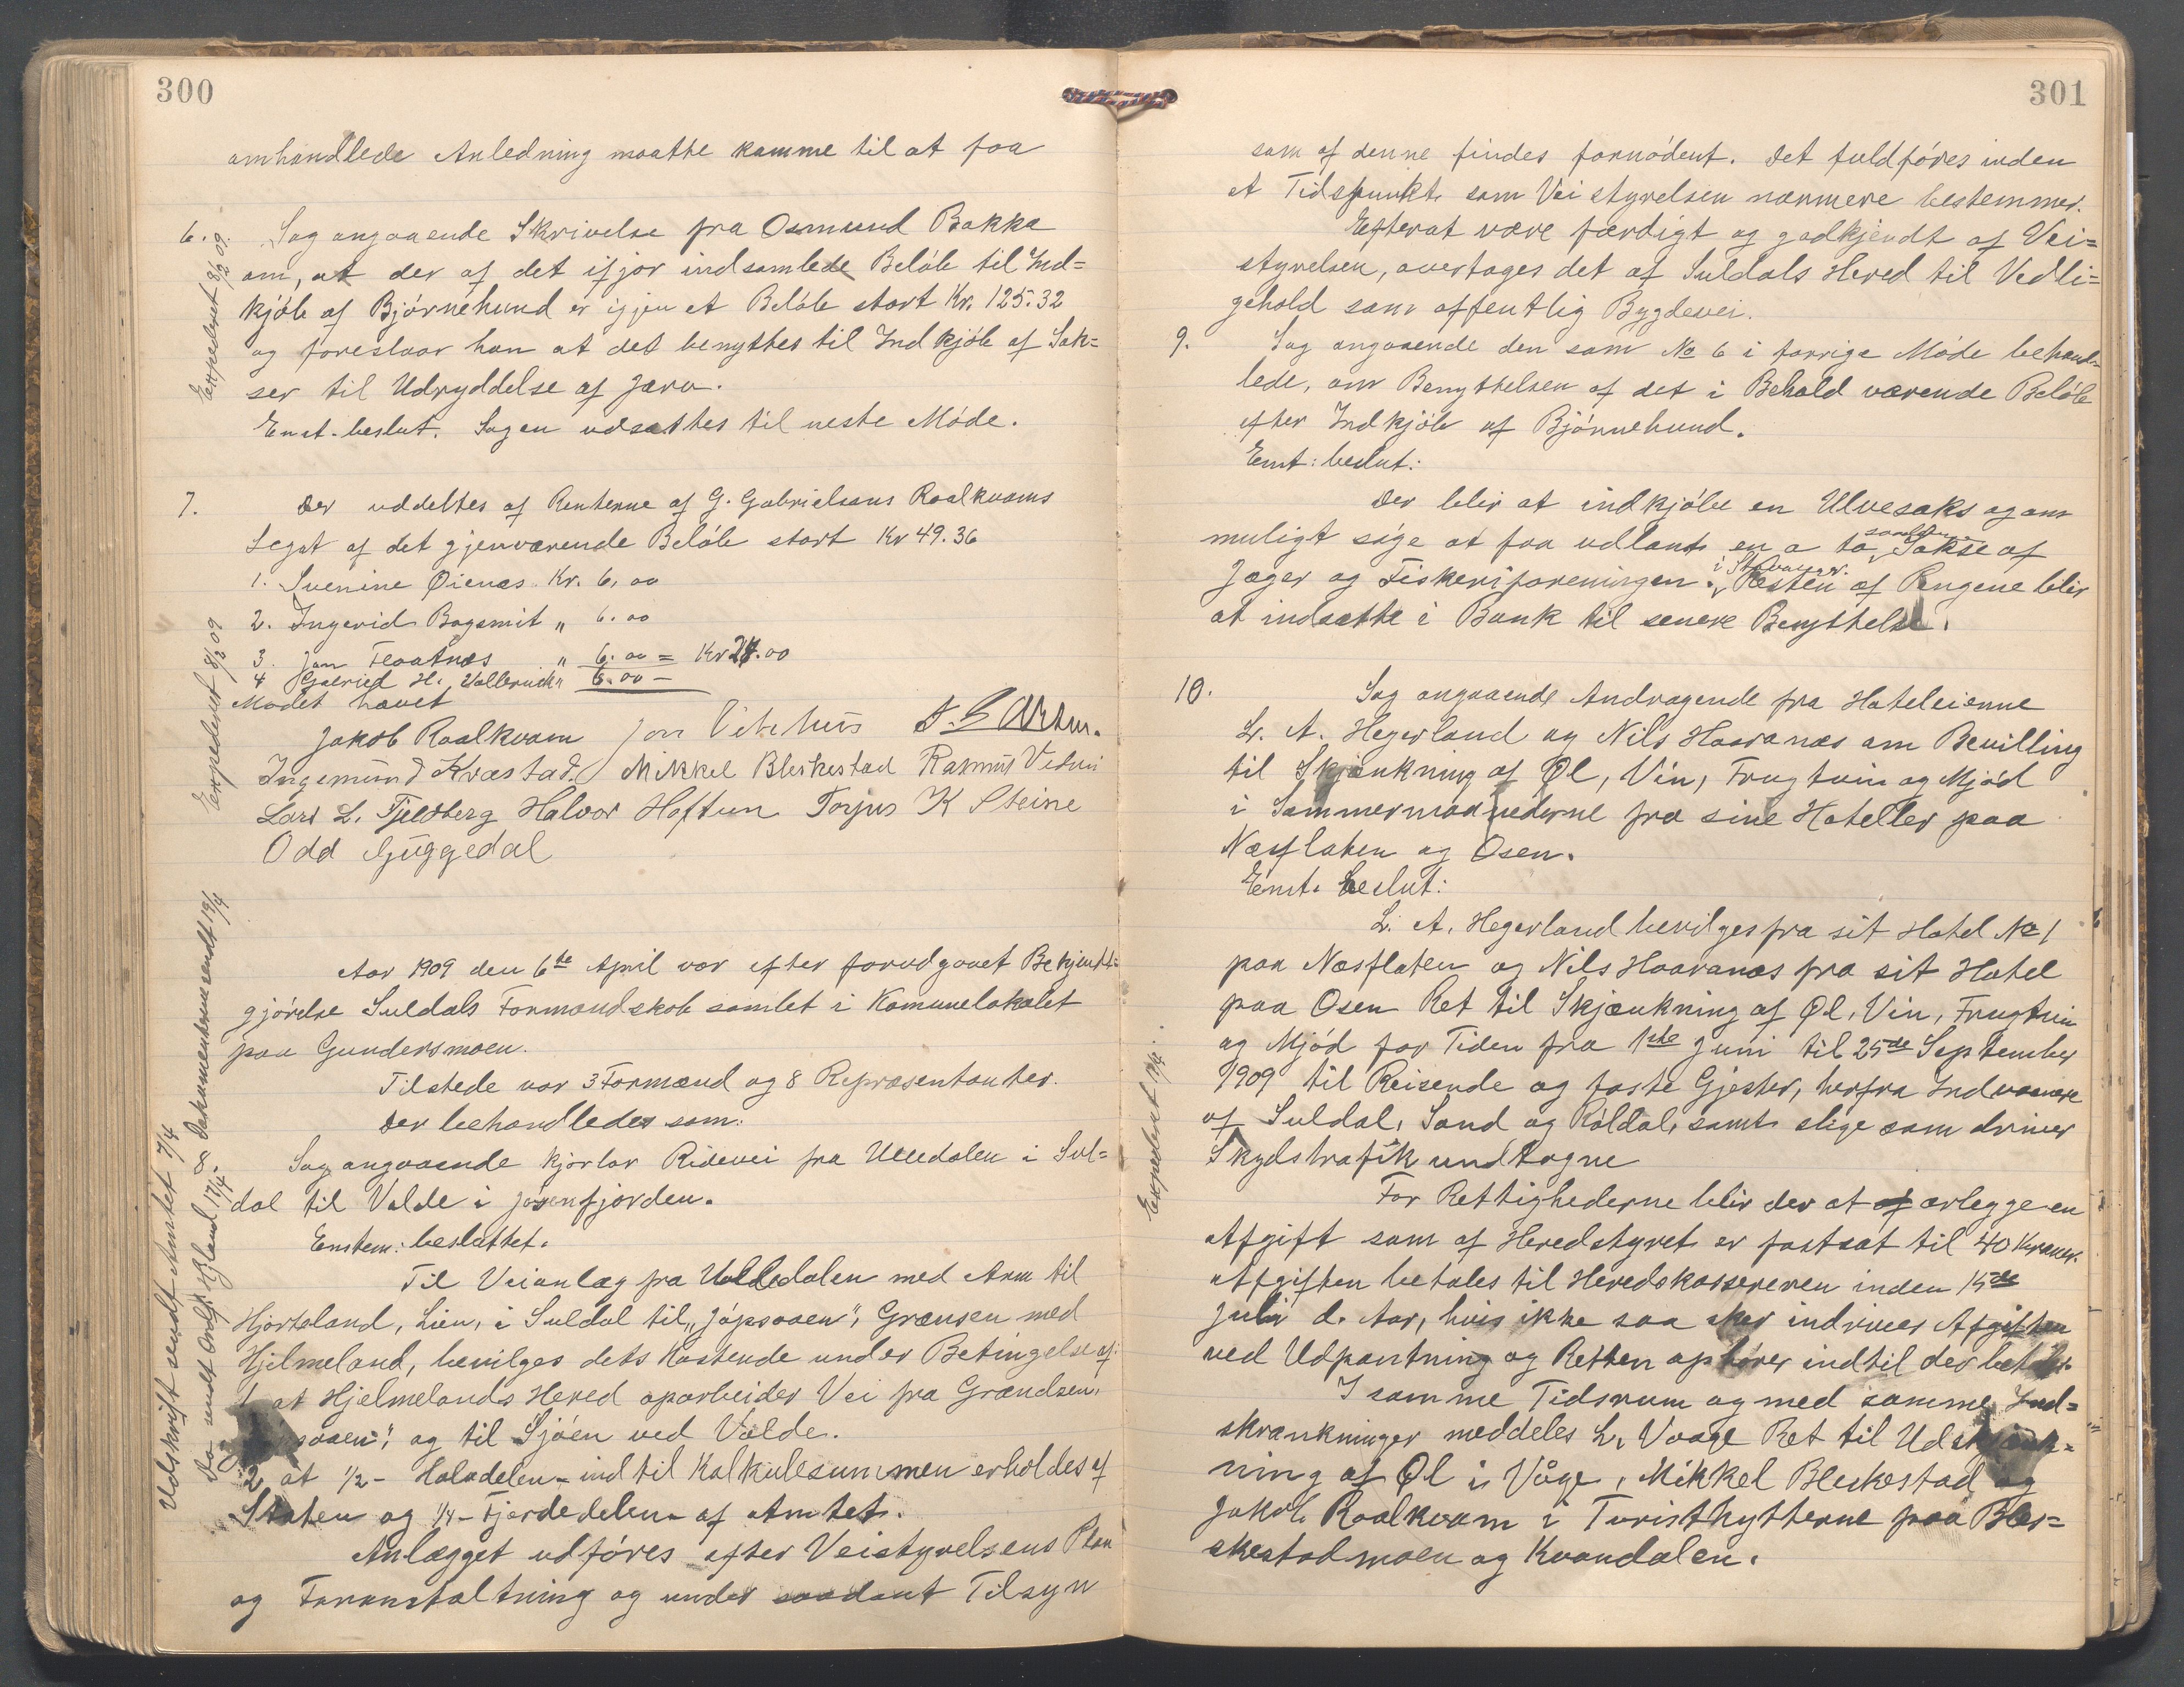 300
omhandlede Anledning maatte komme til at faa
6. Sag angaaende Skrivelse fra Osmund Bakka
om, at der af det ifjor indsamlede Beløb til Ind=
kjøb af Bjørnehund er igjen et Beløb stort Kr. 125.32
og foreslaar han at det benyttes til Indkjøb af Sak=
ser til Udryddelse af Jærv.
Enst. beslut. Sagen udsættes til neste Møde.
Expederet 8/2 09.
7. Der uddeltes af Renterne af G. Gabrielsens Roalkvams
Legat af det gjenværende Beløb stort Kr 49.36
1. Svenine Øienæs Kr. 6,00
2. Ingerid Bogsmit " 6.00
3. Jon Floatnæs " 6.00 = Kr 24.00
4 H. " 6.00 —
Mødet hævet
Expederet 8/2 09
Jakob Roalkvam Jon Vetrhus
Ingemund Kvæstad. Mikkel Bleskestad Rasmus Vetrhus
Lars L. Fjeldberg Halvor Hoftun Torjus K Steine
Odd Guggedal
Aar 1909 den 6te April var efter forudgaaet Bekjendt=
gjørelse Suldals Formandskab samlet i Komunelokalet
paa Gundersmoen.
Tilstede var 3 Formænd og 8 Repræsentanter.
Der behandledes som:
8 Sag angaaende kjørbar Ridevei fra Ulledalen i Sul=
dal til Valde i Jøsenfjorden.
Enstem: besluttet.
Til Veianlæg fra Ulledalen med Arm til
Hjorteland, Lien, i Suldal til "Jøpsaaen", Grænsen med
Hjelmeland, bevilges dets Kostende under Betingelse af:
1 at Hjelmelands Hered oparbeider Vei fra Grændsen,
og til Sjøen ved Valde.
2 at 1/2 - Halvdelen - indtil Kalkulesummen erholdes af
Staten og 1/4 - Fjerdedelen - af Amtet.
Anlægget udføres efter Veistyrelsens Plan
og Foranstaltning og under saadant Tilsyn
Udskrift sendt Amtet 7/4
Do sendt Ordf. Hjland 17/4. Dokumenterne sendt 19/4
301
som af denne findes fornødent. Det fuldføres inden
et Tidspunkt som Veistyrelsen nærmere bestemmer.
Efterat være færdigt og godkjendt af Vei=
styrelsen, overtages det af Suldals Hered til Vedli=
gehold som offentlig Bygdevei.
9. Sag angaaende den som No 6 i forrige Møde behand-
lede, om Benyttelsen af det i Behold værende Beløb
efter Indkjøb af Bjørnehund.
Emt: beslut:
Der blir at indkjøbe en Ulvesaks og om
muligt søge at faa udlaant en a to Sakse af
Jæger og Fiskeriforeningen i Stavanger. Resten af Pengene blir
at indsætte i Bank til senere Benyttelse.
10. Sag angaaende Andragende fra Hoteleierne
L. A. Hegerland og Nils Haaranæs om Bevilling
til Skjænkning af Øl, Vin, Frugtvin og Mjød
i Sommermaanederne fra sine Hoteller paa
Næsflaten og Osen.
Enst. beslut:
L. A. Hegerland bevilges fra sit Hotel No 1
paa Næsflaten og Nils Haaranæs fra sit Hotel
paa Osen Ret til Skjænkning af Øl, Vin, Frugtvin
og Mjød for Tiden fra 1ste Juni til 25de September
1909 til Reisende og faste Gjester, herfra Indvaanere
af Suldal, Sand og Røldal, samt slige som driver
Skydstrafik undtagne
For Rettighederne blir der at erlegge en
Afgift som af Heredstyret er fastsat til 40 Kroner.
Afgiften betales til Heredskassereren inden 15de
Juli d. Aar, hvis ikke saa sker indrives Afgiften
ved Udpantning og Retten ophører indtil der betales.
I samme Tidsrum og med samme Ind=
skrænkninger meddeles L. Vaage Ret til Udskjænk=
ning af Øl i Våge, Mikkel Bleskestad og
Jakob Roalkvam i Turisthytterne paa Bles=
kestadmoen og Kvandalen.
Expederet 17/4.